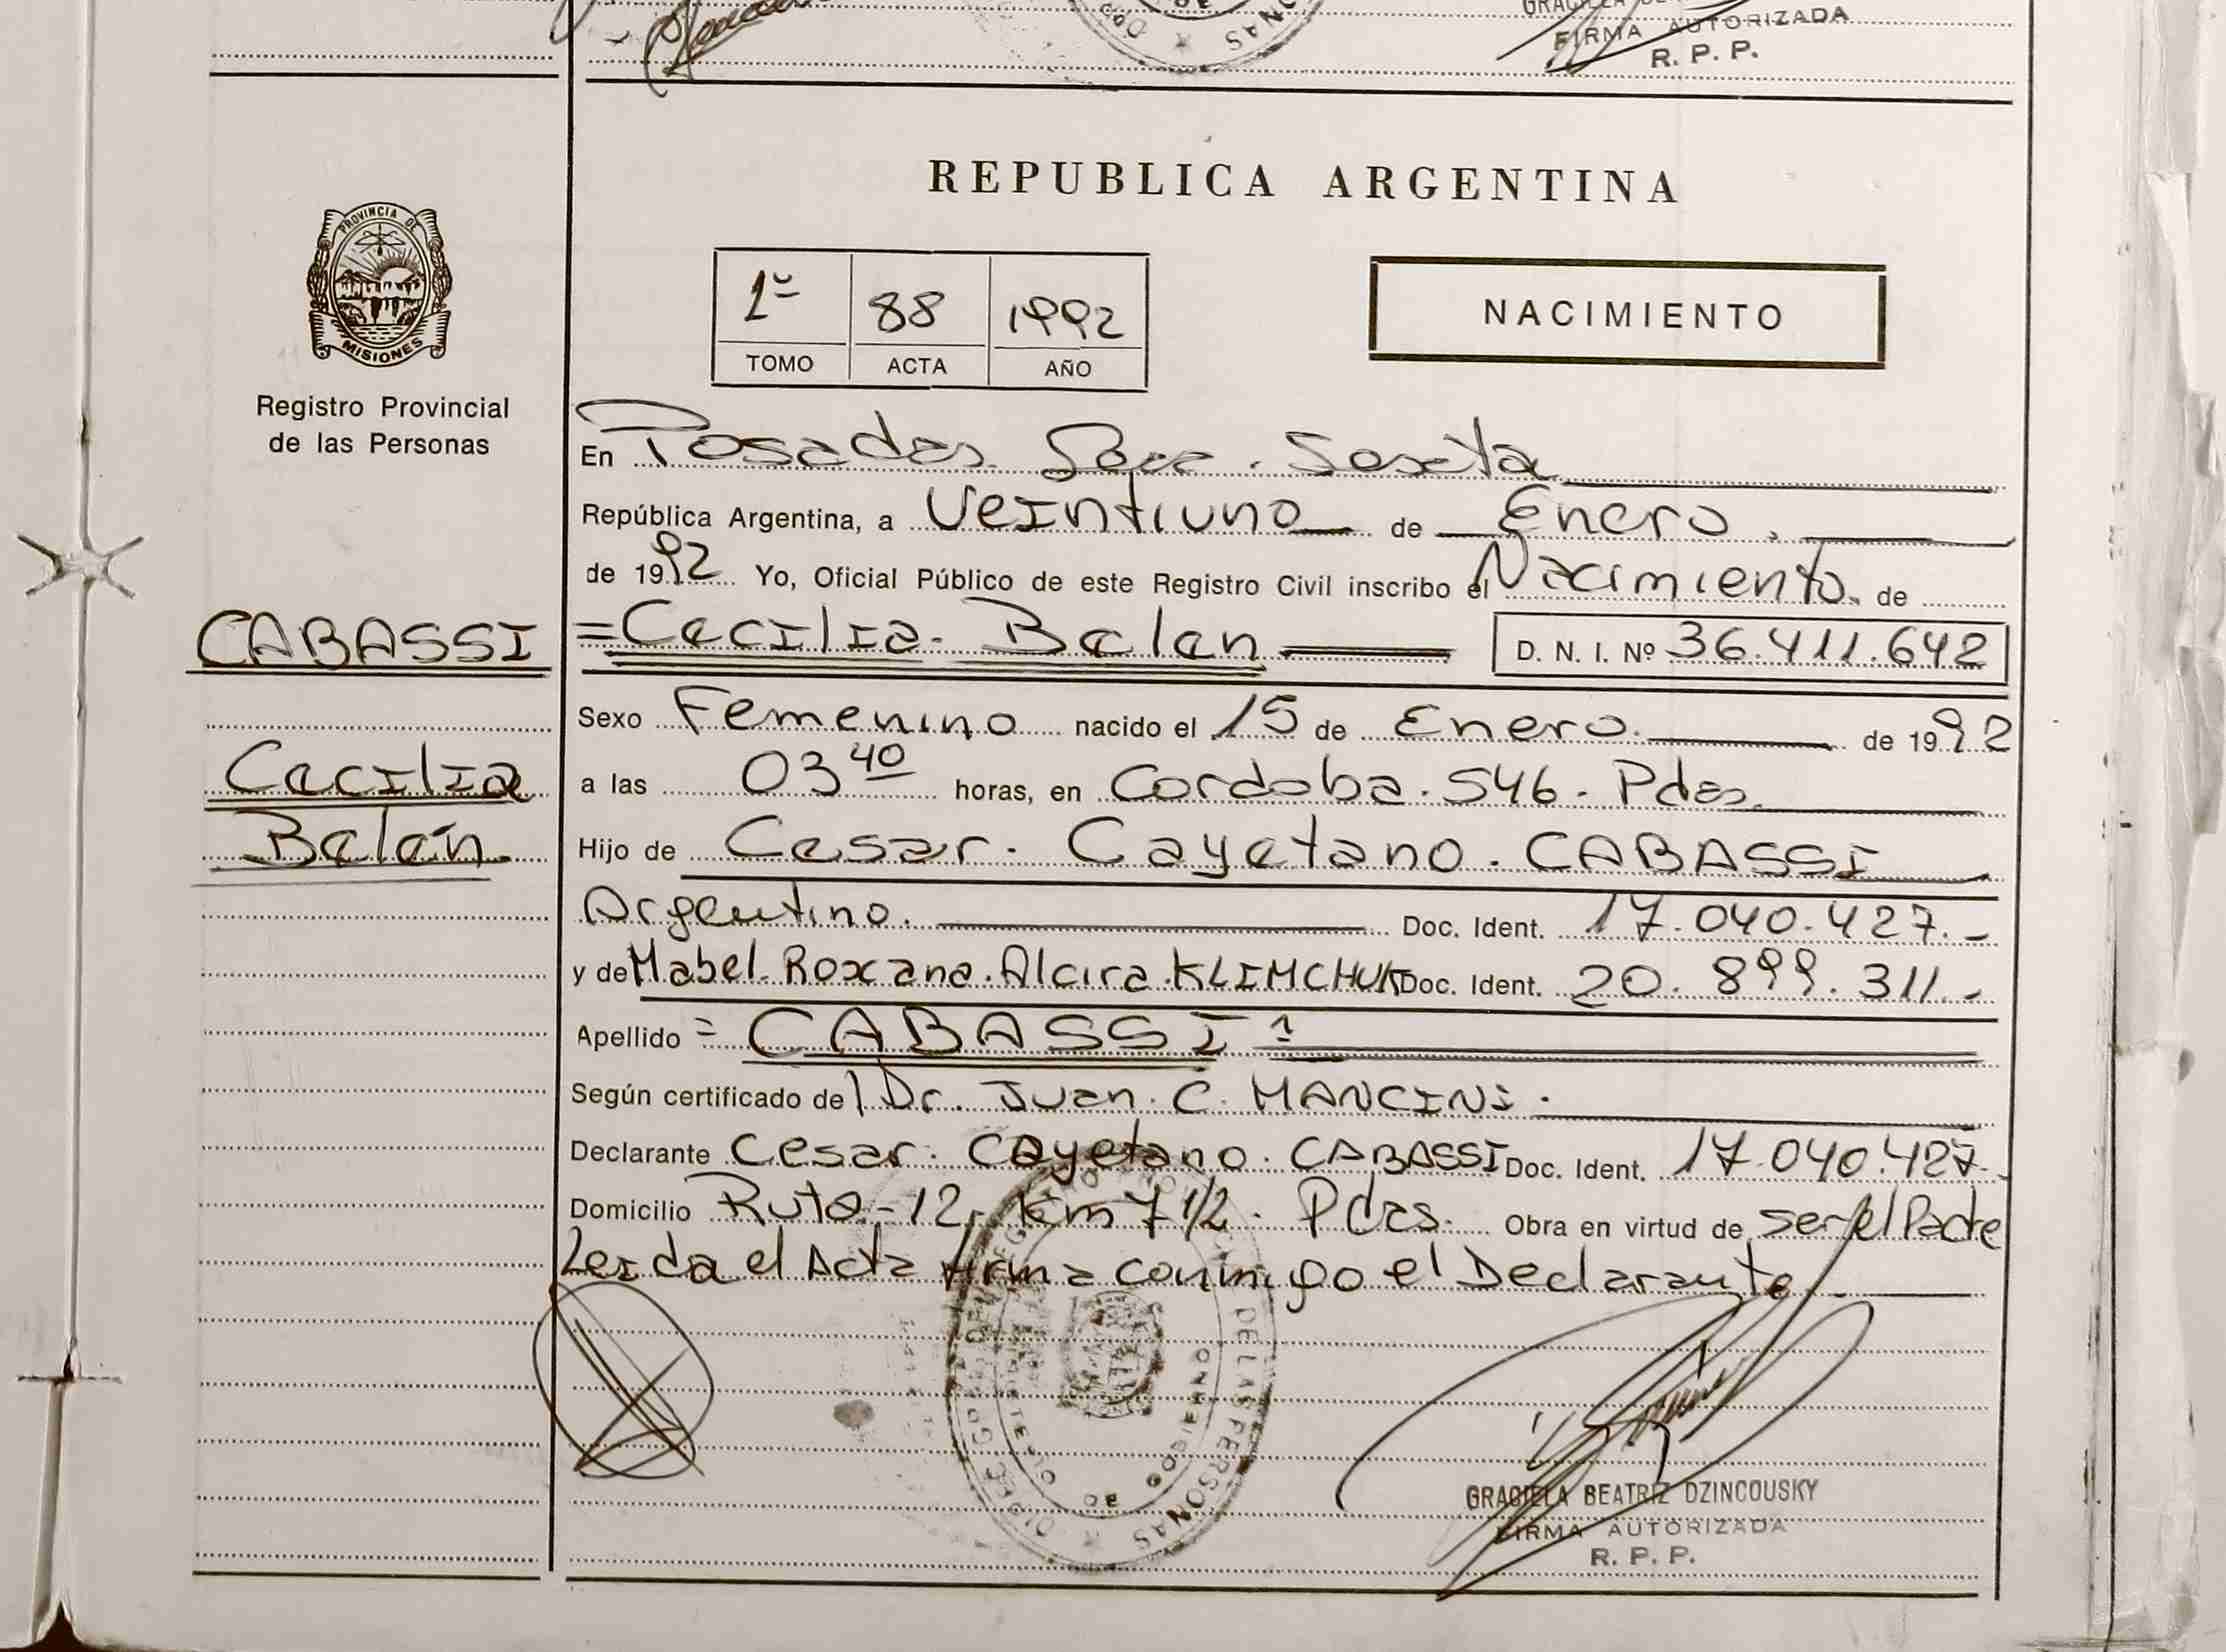 FIRMA AUTORIZADA
R. P. P.
REPUBLICA ARGENTINA
PROVINCIA DE
MISIONES
Registro Provincial
de las Personas
1º 88 1992
TOMO ACTA AÑO
NACIMIENTO
En Posadas. Secc. Sexta
República Argentina, a Veintiuno de Enero.
de 1992 Yo, Oficial Público de este Registro Civil inscribo el Nacimiento. de
CABASSI
=Cecilia. Belen D. N. I. Nº 36.411.642
Sexo Femenino nacido el 15 de Enero. de 1992
Cecilia
Belén.
a las 03 40 horas, en Cordoba. 546. Pdas.
Hijo de Cesar. Cayetano. CABASSI
Argentino. Doc. Ident. 17.040.427.-
y de Mabel. Roxana. Alcira. KLIMCHUK Doc. Ident. 20.899.311.-
Apellido = CABASSI =
Según certificado del Dr. Juan. C. MANCINi.
Declarante Cesar. Cayetano. CABASSI Doc. Ident. 17.040.427.-
Domicilio Ruta-12, Km 7 1/2. Pdas. Obra en virtud de ser el Padre
Leida el Acta firma conmigo el Declarante.
DE LAS PERSONAS
GRACIELA BEATRIZ DZINCOUSKY
FIRMA AUTORIZADA
R. P. P.